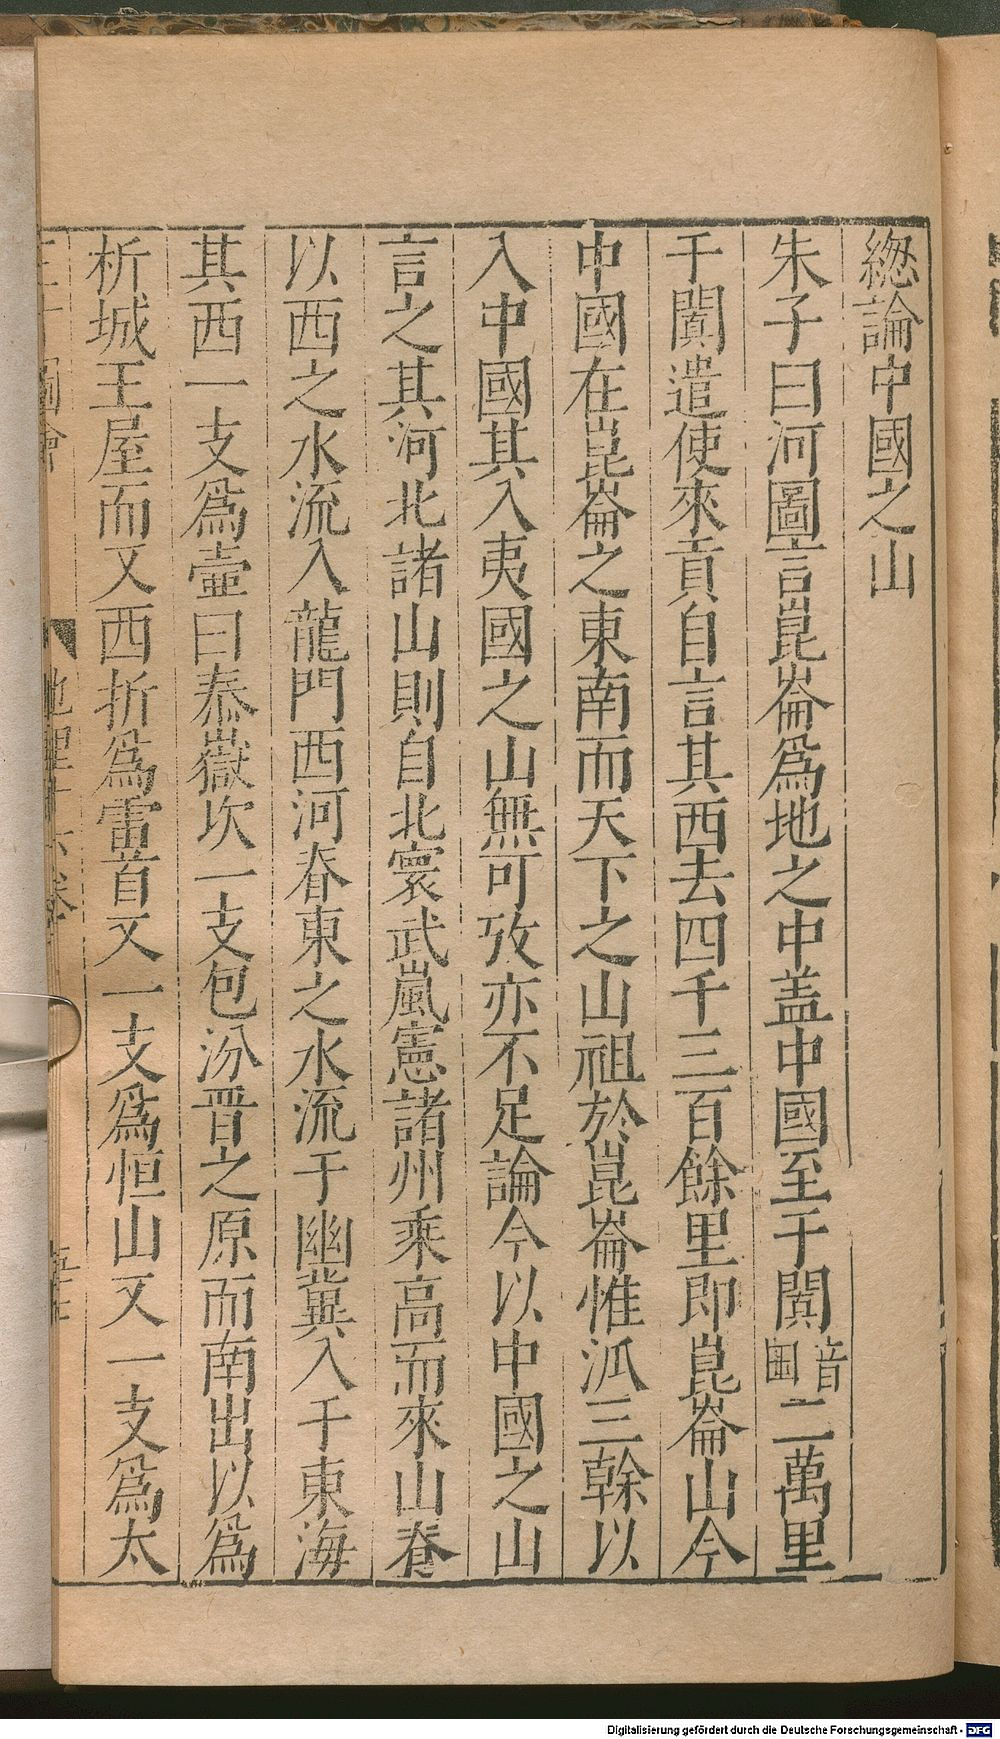 緫論中國之山
朱子曰河圖言崑崙爲地之中盖中國至于闐音國二萬里
于闐遣使來貢自言其西去四千三百餘里即崑崙山今
中國在崑崙之東南而天下之山祖於崑崙惟泒三幹以
入中國其入夷國之山無可攷亦不足論今以中國之山
言之其河北諸山則自北寰武嵐憲諸州乘高而來山脊
以西之水流入龍門西河脊東之水流于幽冀入于東海
其西一支爲壷曰泰嶽坎一支包汾晋之原而南出以爲
析城王屋而又西折爲雷首又一支爲恒山又一支爲太
三才圖會
地理十六卷
Digitalisierung gefördert durch die Deutsche Forschungsgemeinschaft - DFG